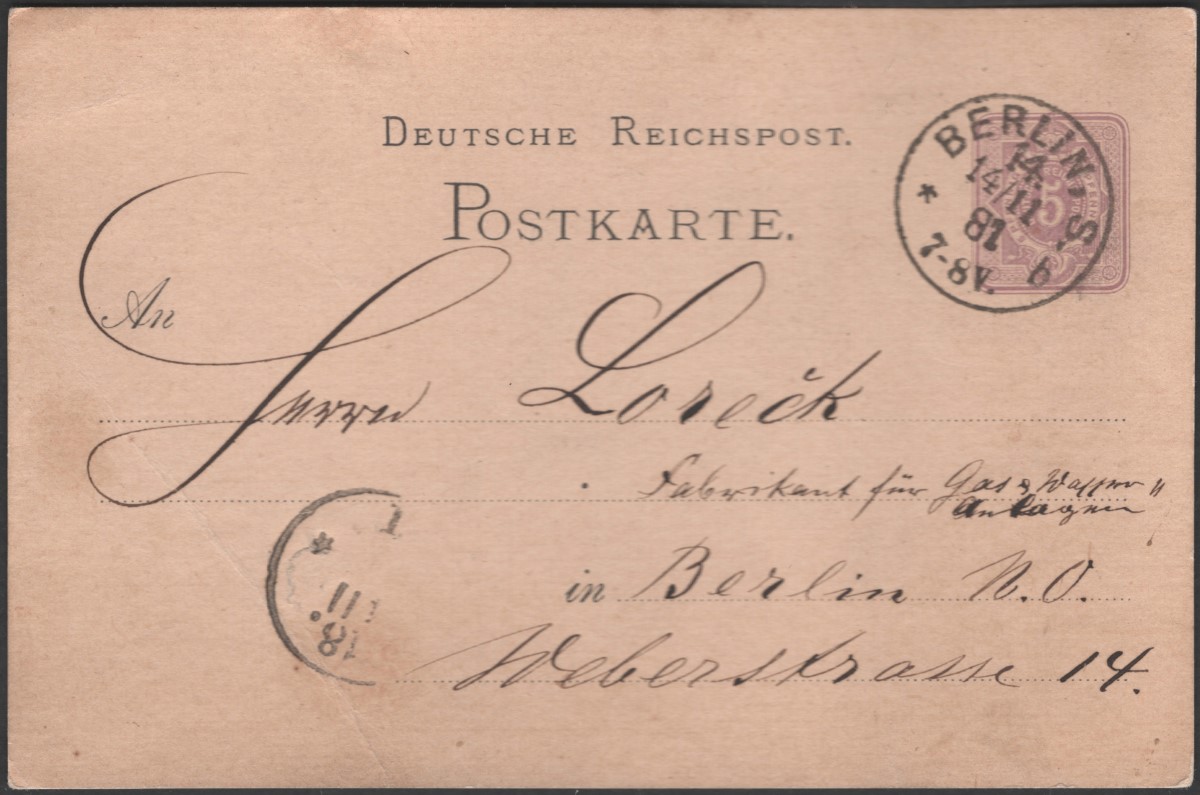 DEUTSCHE REICHSPOST.
POSTKARTE.
BERLIN, S.
14.
14/11
81
7-8V.
b
5
An
Herrn Loreck
Fabrikant für Gas & Wasser "
Anlagen
in Berlin N. O.
Weberstrasse 14.
11.